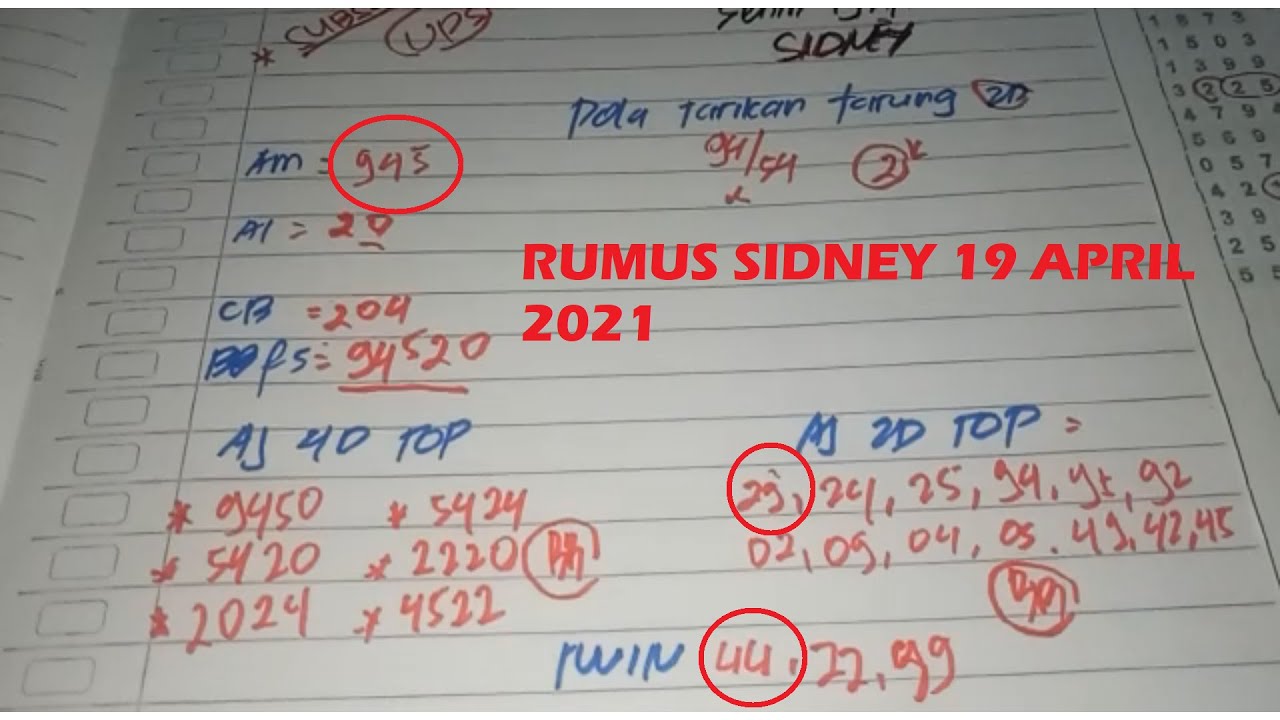 * SUBS
UPS
SIDNEY
Pola Tarikan tarung 2D
94/54 2
AM = 945
AI = 20
RUMUS SIDNEY 19 APRIL
2021
CB = 204
fs = 94520
AJ 4D TOP
AJ 2D TOP =
* 9450 * 5424
* 5420 * 2220 BB
* 2024 * 4522
29, 24, 25, 94, 95, 92
02, 09, 04, 05. 49, 42, 45
BB
TWIN 44, 22, 99
1 8 7 3
1 5 0 3
1 3 9 9
3 2 2 5
4 7 9 4
5 6 9
0 5 7
4 2
3 9
2 5
5 5